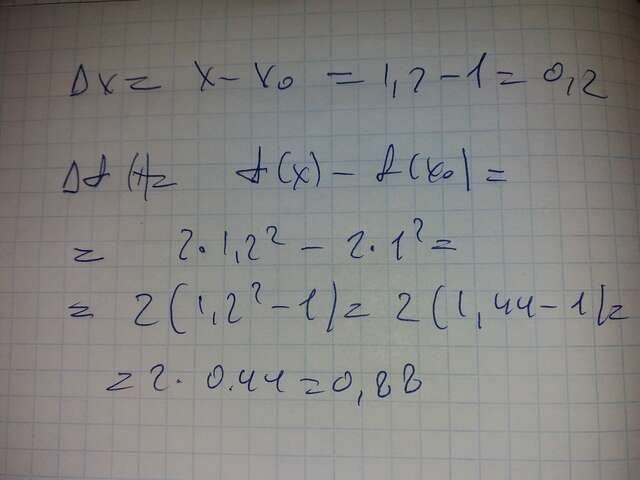 Δx = x - x₀ = 1,2 - 1 = 0,2
Δf(x) = f(x) - f(x₀) =
= 2·1,2² - 2·1² =
= 2(1,2² - 1) = 2(1,44 - 1) =
= 2·0.44 = 0,88